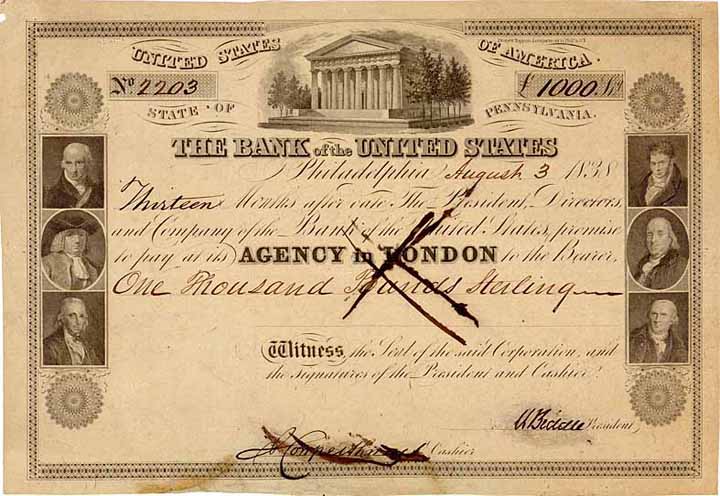 UNITED STATES OF AMERICA.
No 2203 £ 1000 St
STATE OF PENNSYLVANIA.
THE BANK of the UNITED STATES
Philadelphia August 3 1838
Thirteen Months after date The President, Directors,
and Company of the Bank of the United States, promise
to pay at its AGENCY in LONDON to the Bearer.
One Thousand Pounds Sterling
Witness, the Seal of the said Corporation, and
the signatures of the President and Cashier.
N Biddle President,
Cashier